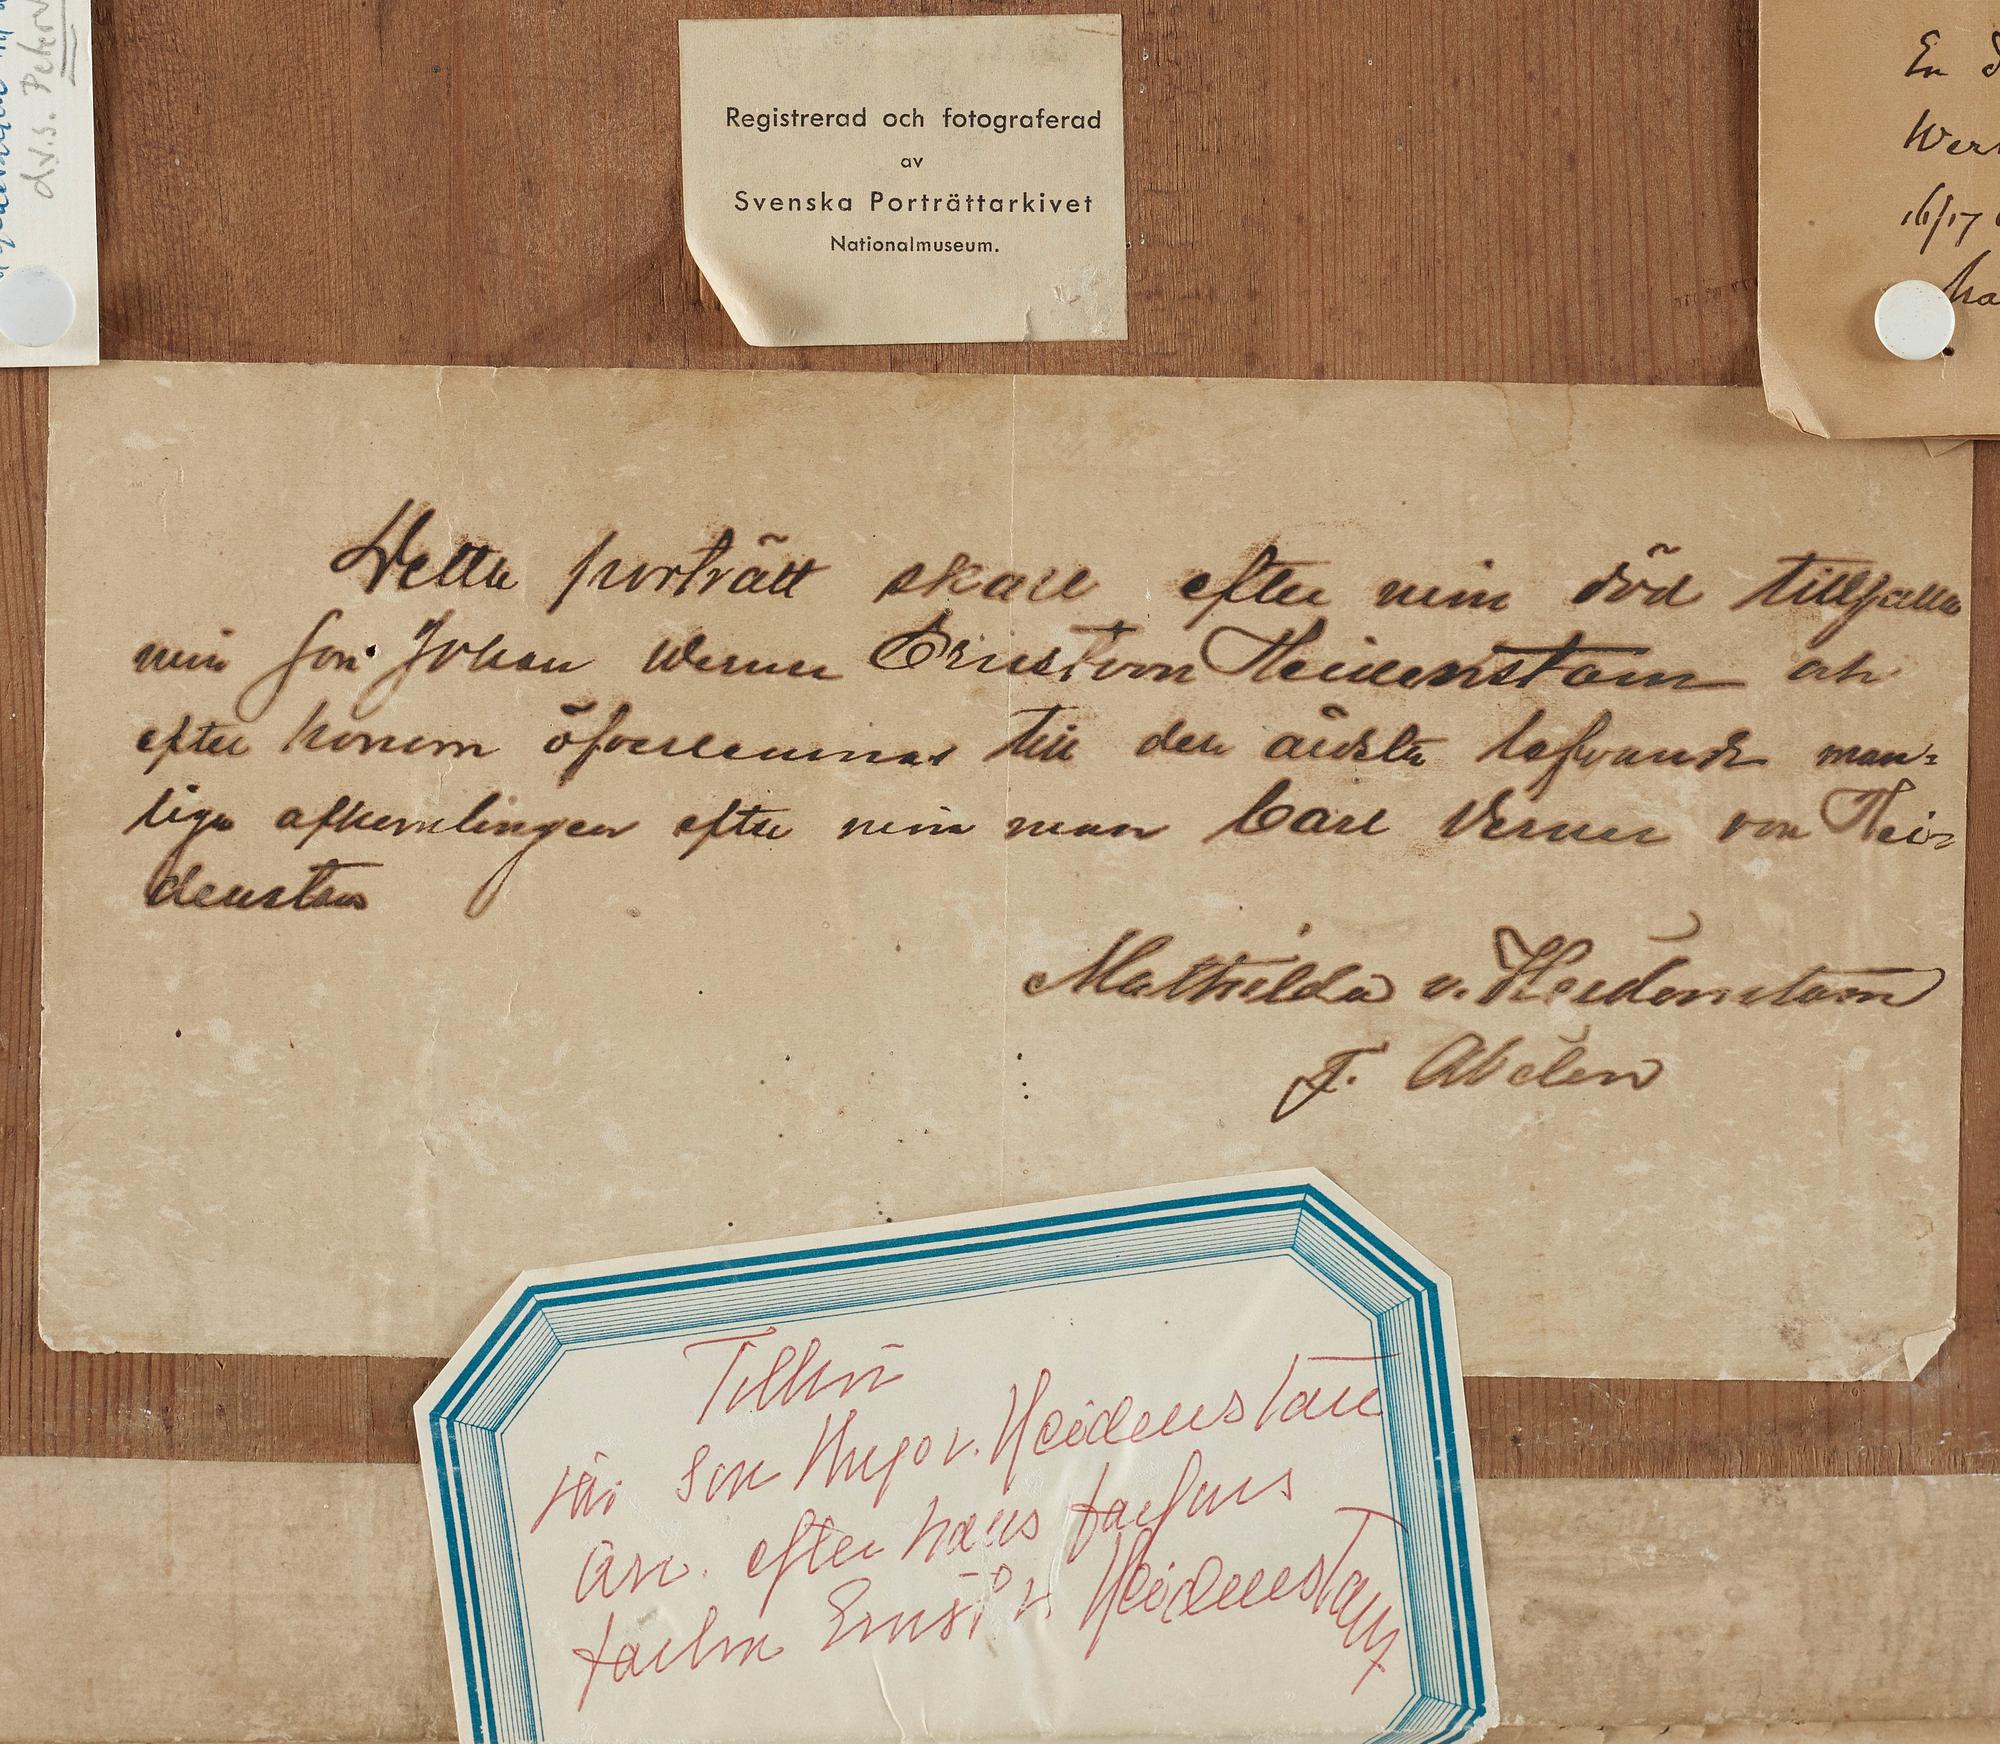 d.v.s. Peter
Registrerad och fotograferad
av
Svenska Porträttarkivet
Nationalmuseum.
En
Wer
16/17
ha
Detta porträtt skall efter min död tillfalla
min son Johan Werner Ernst von Heidenstam och
efter honom öfverlemnas till den äldste lefvande man-
liga afkomlingen efter min man Carl Verner von Hei-
denstam
Mathilda v. Heidenstam
F. Abelen
Tillhör
min Son Hugo v. Heidenstam
Arv. efter hans farfars
farbror Ernst v. Heidenstam